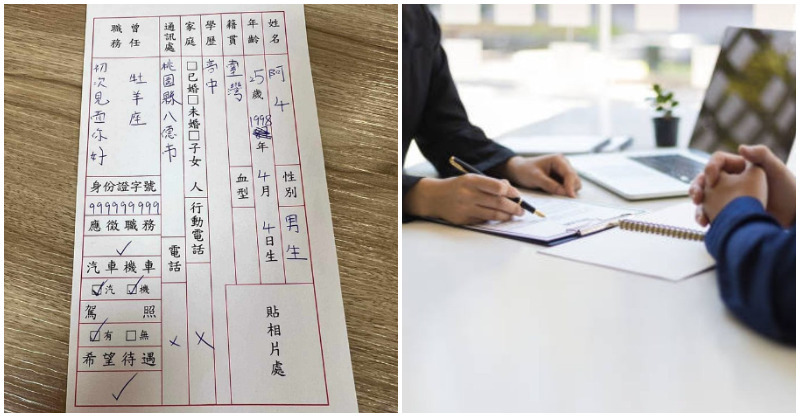 姓名 阿4
年齡 25歲 1998年4月4日生
性別 男生
籍貫 臺灣
血型
學歷 高中
家庭 □已婚□未婚□子女 人
行動電話 ×
通訊處 桃園縣八德市
電話 ×
曾任職務 牡羊座
初次見面你好
身份證字號
999999999
應徵職務
✓
汽車機車
☑汽 ☑機
駕照
☑有 □無
希望待遇
✓
貼相片處